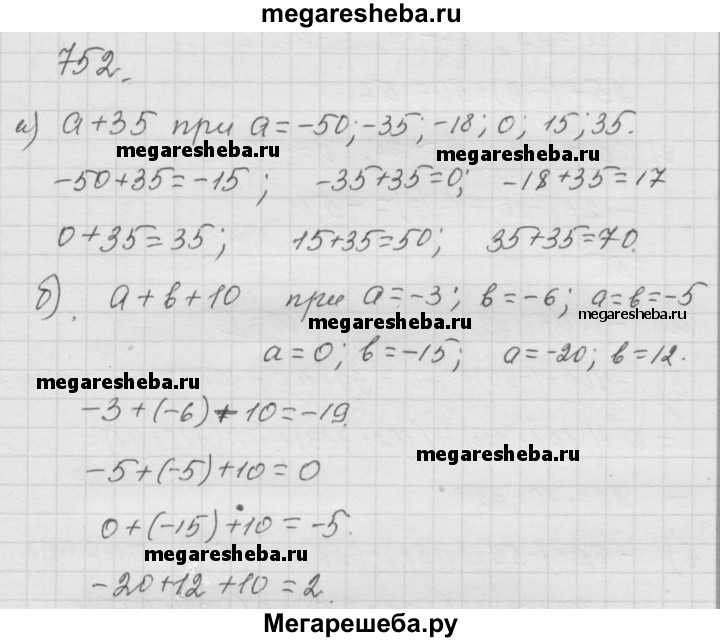 megaresheba.ru
752.
а) a+35 при a=-50; -35; -18; 0; 15; 35.
megaresheba.ru megaresheba.ru
-50+35=-15; -35+35=0; -18+35=17
0+35=35; 15+35=50; 35+35=70.
б). a+b+10 при a=-3; b=-6; a=b=-5
megaresheba.ru megaresheba.ru
a=0; b=-15; a=-20; b=12.
megaresheba.ru
-3+(-6)+10=-19.
-5+(-5)+10=0
megaresheba.ru
0+(-15)+10=-5.
megaresheba.ru
-20+12+10=2.
Мегарешеба.ру